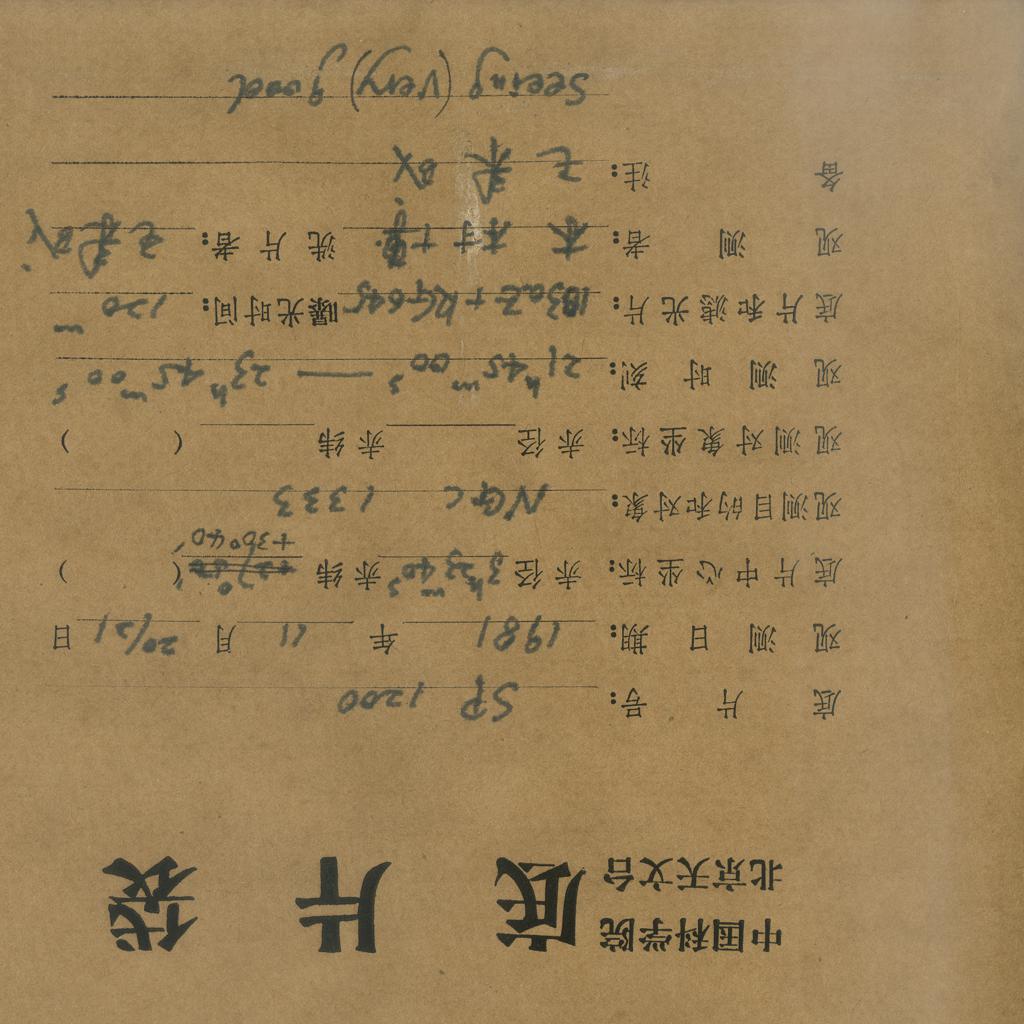 中国科学院
北京天文台 底片袋
底片号: SP 1200
观测日期: 1981 年 11 月 20/21 日
底片中心坐标: 赤径 3h 23m 40s 赤纬 +30°40′ ( )
观测目的和对象: NGC 1333
观测对象坐标: 赤径 赤纬 ( )
观测时刻: 21h 45m 00s —— 23h 45m 00s
底片和滤光片: 103aE + RG645 曝光时间: 120m
观测者: 木村博 洗片者:
备注:
Seeing (Very) good